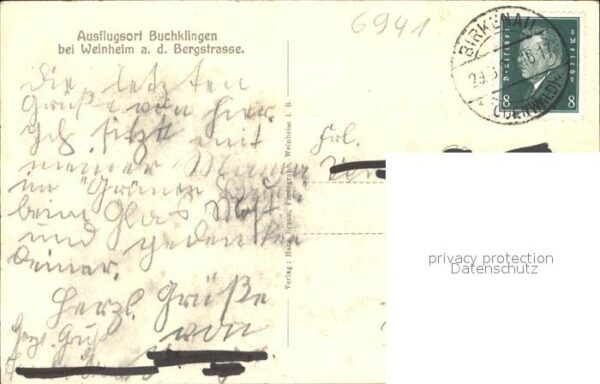 Ausflugsort Buchklingen
bei Weinheim a. d. Bergstrasse.
6941
BIRKENAU
(ODENWALD)
Deutsches Reich
8 8
Die letzten
Grüße von hier.
Ich sitze mit
meiner Mama
im "Grünen Baum"
beim Glas Most
und gedenken
deiner.
Herzl. Grüße
von
Herzl. Gruß
Frl.
Verlag: Hans Braun, Photograph, Weinheim i. B.
privacy protection
Datenschutz